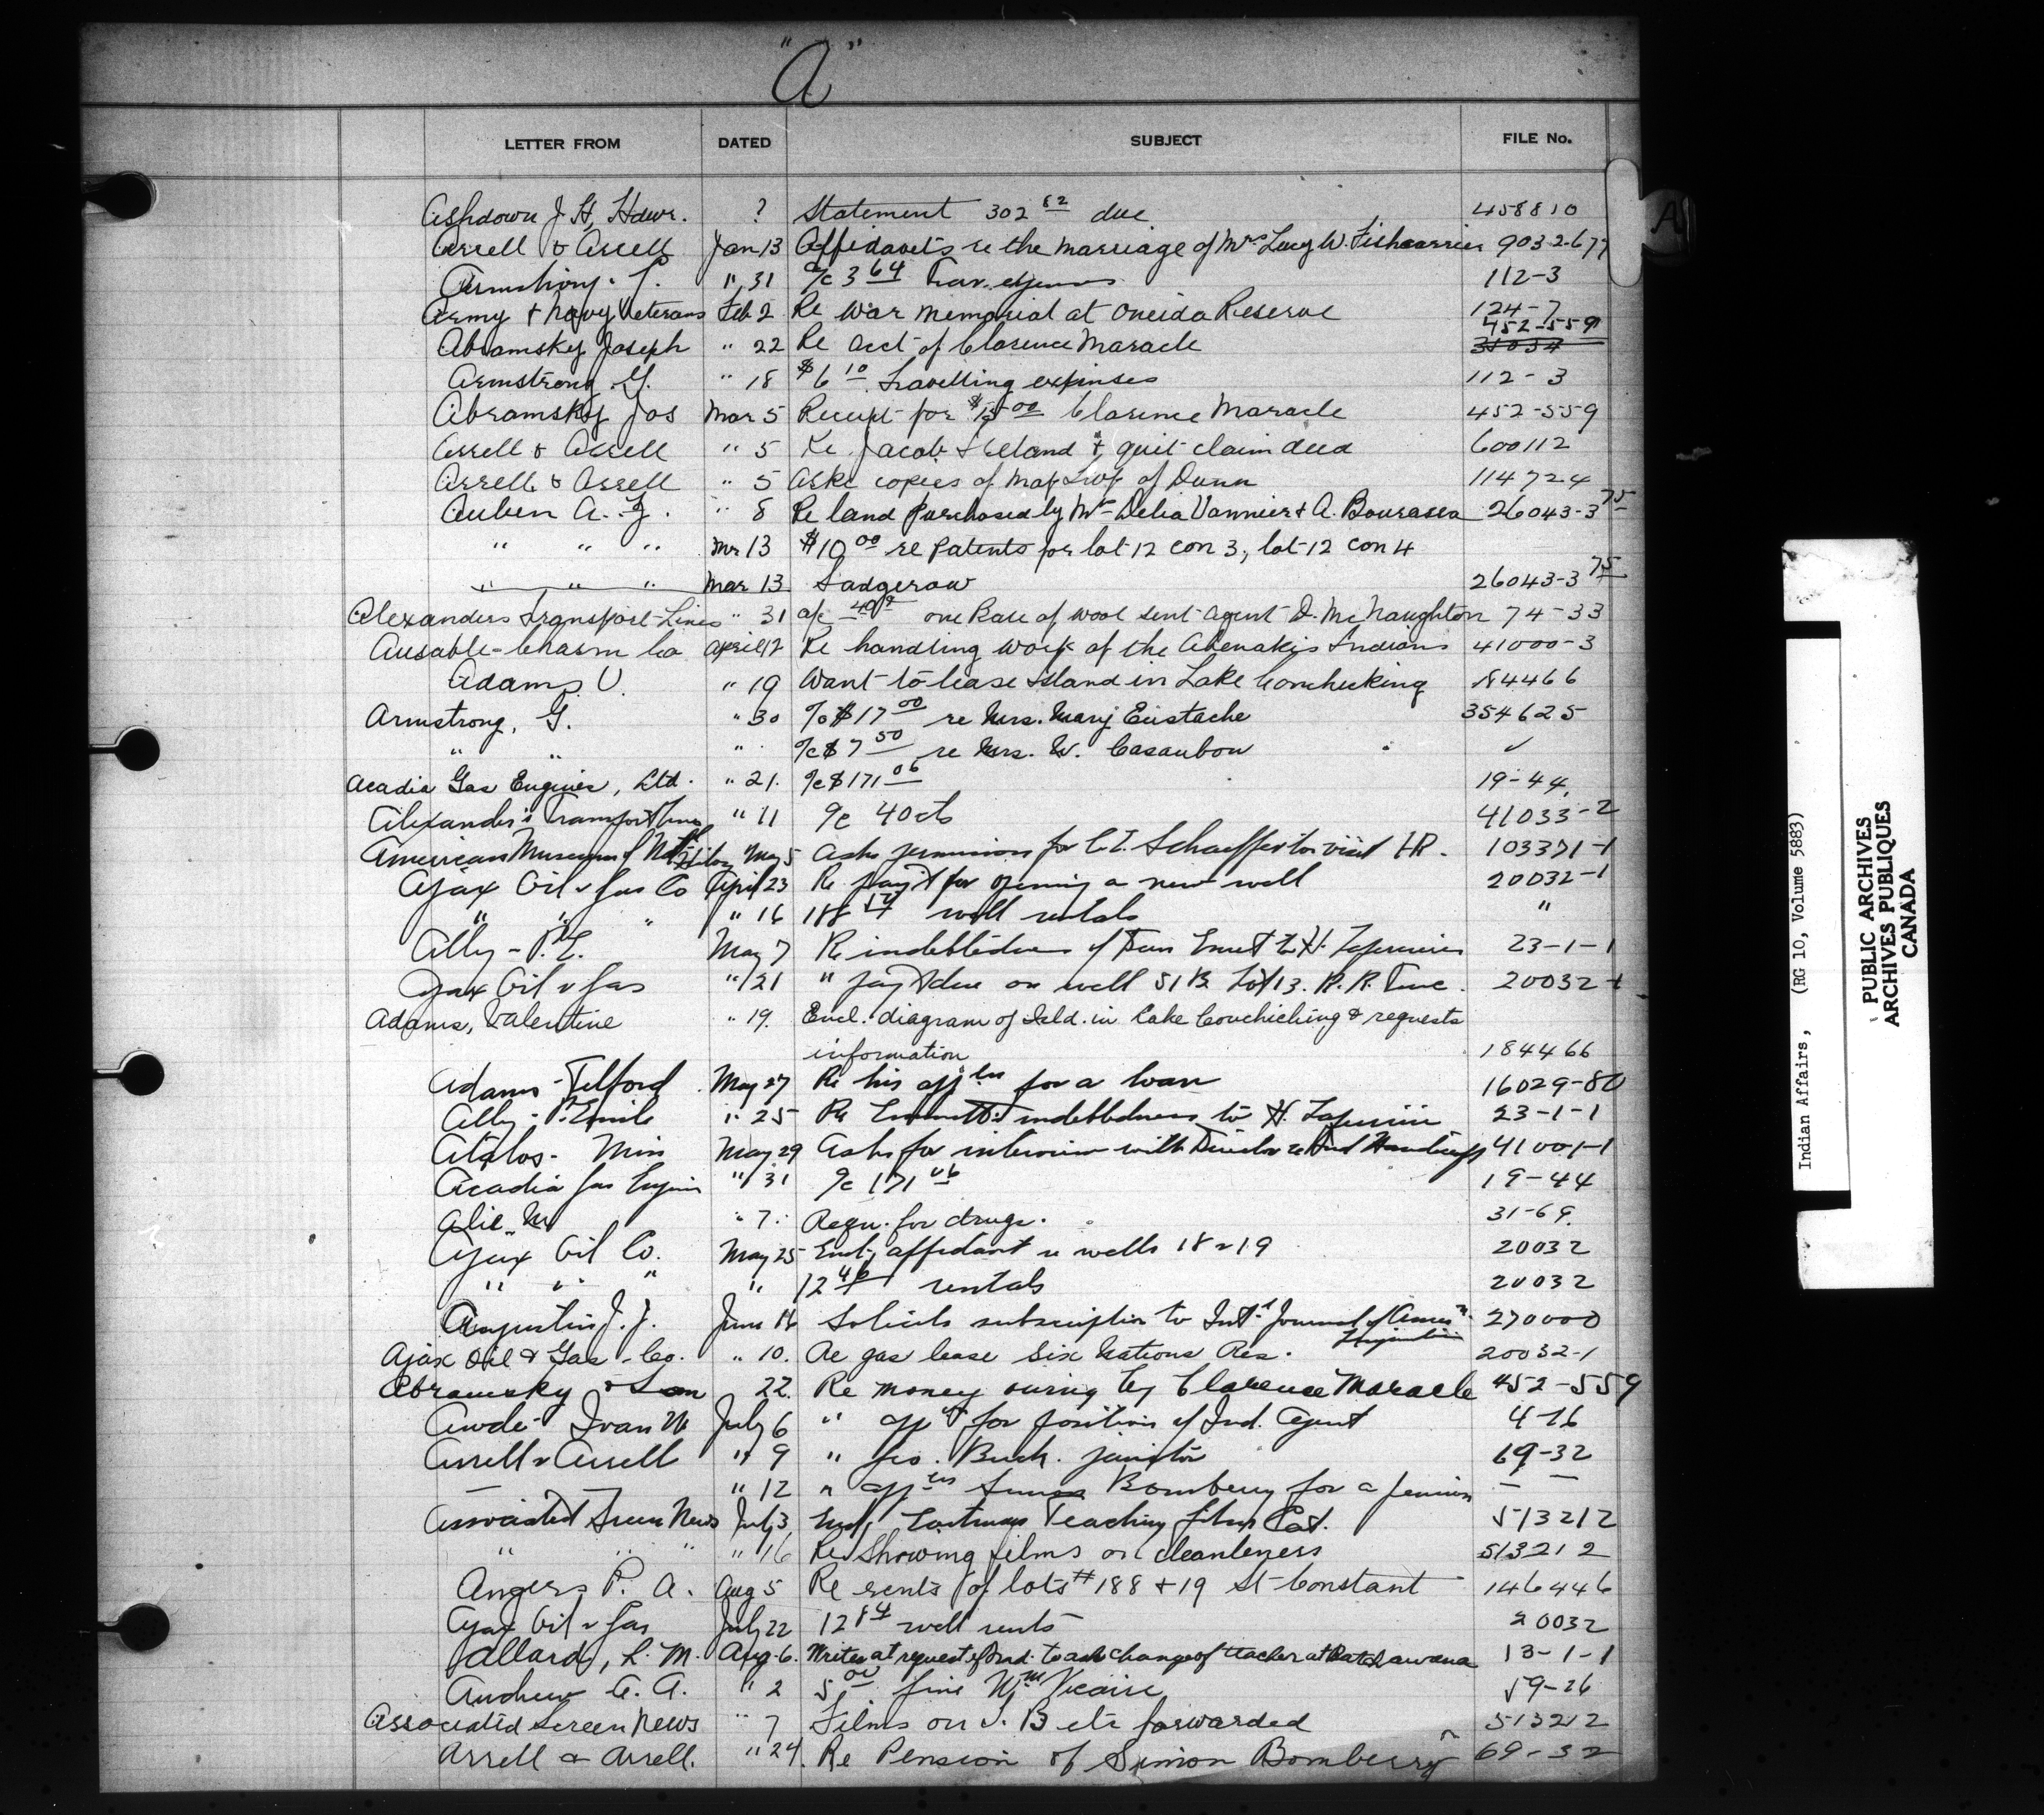 "A"
LETTER FROM DATED SUBJECT FILE No.
Ashdown J. H, Hdwr. ? Statement 302 82 due 458810
Arrell & Arrell Jan 13 Affidavits re the marriage of Mrs Lucy W. Fishcarrier 9032-677
Armstrong. " 31 a/c 3 64 Trav. expenses 112-3
Army & Navy Veterans Feb 2 Re War memorial at Oneida Reserve 124-7
452-559
Abramsky Joseph " 22 Re acct of Clarence Maracle 31034
Armstrong G. " 18 $6 10 Travelling expenses 112-3
Abramsky Jos Mar 5 Receipt for $15 00 Clarence Maracle 452-559
Arrell & Arrell " 5 Re Jacob & quit claim deed 600112
Arrell & Arrell " 5 Asks copies of Map Twp of Dunn 114724
Aubin A. Z. " 8 Re land purchased by Mrs Delia Vannier & A. Bourassa 26043-3 75
" " " Mr 13 $10 00 re Patents for lot 12 con 3, lot 12 con 4
" " " Mar 13 Sadgerow 26043-3 75
Alexanders Transport Lines " 31 a/c 40 one of wool sent Agent D. McNaughton 74-33
Ausable-Chasm Co April 12 Re handling work of the Abenakis Indians 41000-3
Adams V. " 19 Want to lease Island in Lake Conchicking 184466
Armstrong, G. " 30 a/c $17 00 re Mrs. Mary Eustache 354625
" " " a/c $7 50 re Mrs. W. Casaubon ✓
Acadia Gas Engines, Ltd. " 21. a/c $171 06 19-44.
Alexander's Transport Lines " 11 a/c 40cts 41033-2
American Museum of Nat'l History May 5 Asks permission for C. E. Schaeffer to visit I.R. 103371-1
Ajax Oil & Gas Co April 23 Re pay't for opening a new well 20032-1
" " " " 16 188 well rentals "
Ally - P. E. May 7 Re indebtedness of to H. 23-1-1
Ajax Oil & Gas " 21 " pay't due on well 51 B Lot 13. R. R. 20032-1
Adams, Valentine " 19. Encl. diagram of Isld. in Lake Couchiching & requests
information 184466
Adams - Telford May 27 Re his app'l'n for a loan 16029-80
Ally - P. Emile " 25 Re indebtedness to H. 23-1-1
Miss May 29 Asks for interview with Director re Ind Handicraft 41001-1
Acadia Gas Engin " 31 a/c 171 06 19-44
Alie M " 7. Requ. for drugs. 31-69.
Ajax Oil Co. May 25 Encl; affidavit re wells 18 & 19 20032
" " " " 12 46 rentals 20032
Augustin J. J. June 16 Solicits subscription to Int'l Journal of Amer'n Linguistics 270000
Ajax Oil & Gas Co. " 10. Re gas lease Six Nations Res. 20032-1
Abramsky & Son 22. Re money owing by Clarence Maracle 452-559
Awde Ivan W July 6 " app'n for position of Ind. Agent 4-16
Arrell & Arrell " 9 " Geo. Buck. janitor 69-32
" 12 " app'l'n Bomberry for a pension
Associated Screen News July 3, Encl; Eastman Teaching films Cat. 513212
" " " " 16 Re Showing films on cleanleness 513212
Angers P. A. Aug 5 Re rents of lots # 188 & 19 St Constant 146446
Ajax Oil & Gas July 22 12 84 well rents 20032
Allard, L. M. Aug. 6. Writes at request of Ind. to ask change of teacher at Batchawana 13-1-1
Andrew A. " 2 5 00 fine Wm Vicaire 59-26
Associated Screen News " 7 Films on T. B etc forwarded 513212
Arrell & Arrell. " 24. Re Pension of Simon Bomberry 69-32
A
Indian Affairs, (RG 10, Volume 5883)
PUBLIC ARCHIVES
ARCHIVES PUBLIQUES
CANADA